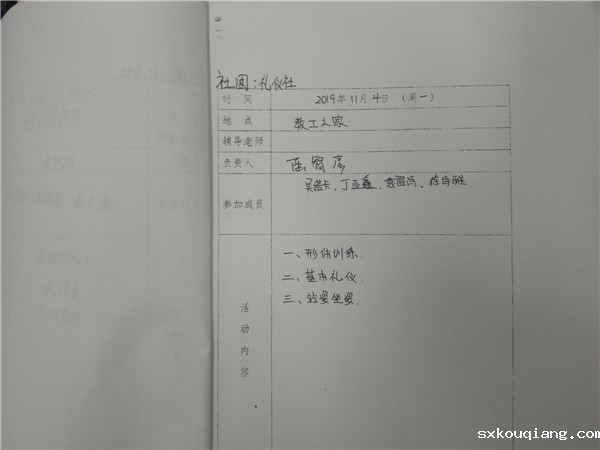 社团：礼仪社
时间 2019年11月4日 （周一）
地点 教工之家
辅导老师
负责人
参加成员 吴诺卡、丁亚鑫、
活动内容
一、形体训练.
二、基本礼仪.
三、站姿坐姿.
sxkouqiang.com